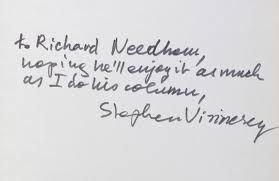 to Richard Needham,
hoping he'll enjoy it as much
as I do his column,
Stephen Vizinczey